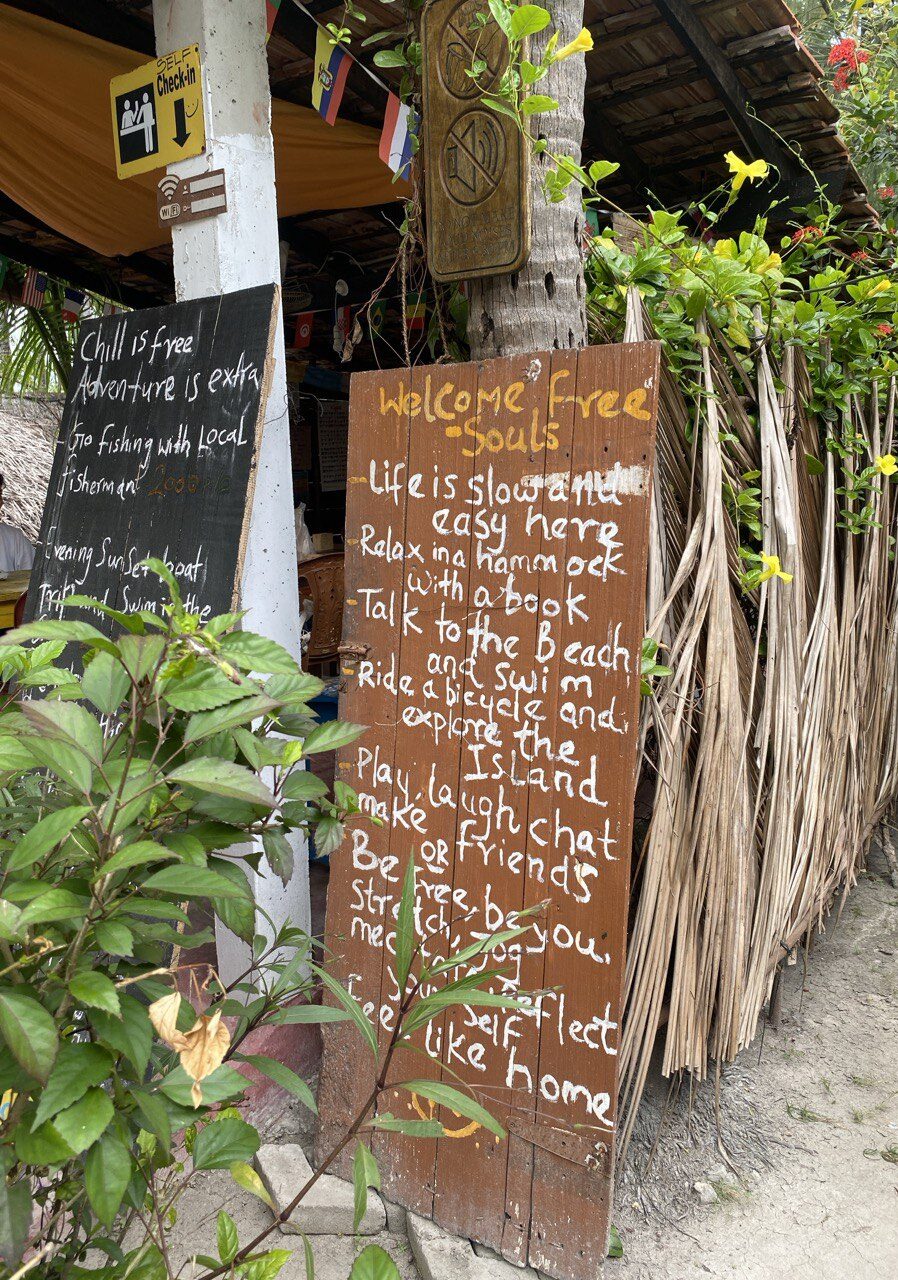 SELF
Check-in
WiFi
Chill is free
Adventure is extra
- Go fishing with Local
fisherman 2000
Evening Sunset boat
Trip and Swim in the
Welcome free
Souls
- Life is slow and
easy here
- Relax in a hammock
with a book
- Talk to the Beach
and swim
- Ride a bicycle and
explore the
Island
- Play, laugh chat
make friends
OR
Be free, be you,
Stretch, Jog
reflect
your self
Feel like home